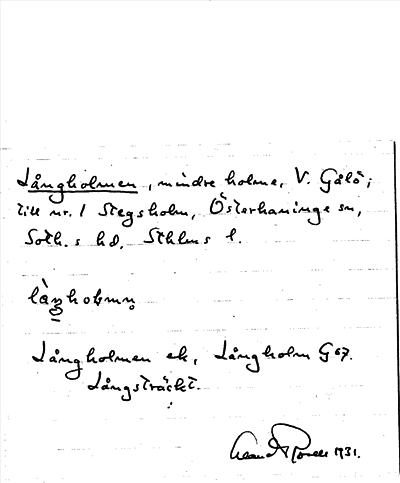 Långholmen, mindre holme, V. Gålö;
till nr. 1 Stegsholm, Österhaninge sn,
Soth.s hd, Sthlms l.
Långholmen ek, Långholm G 67.
Långsträckt.
1931.